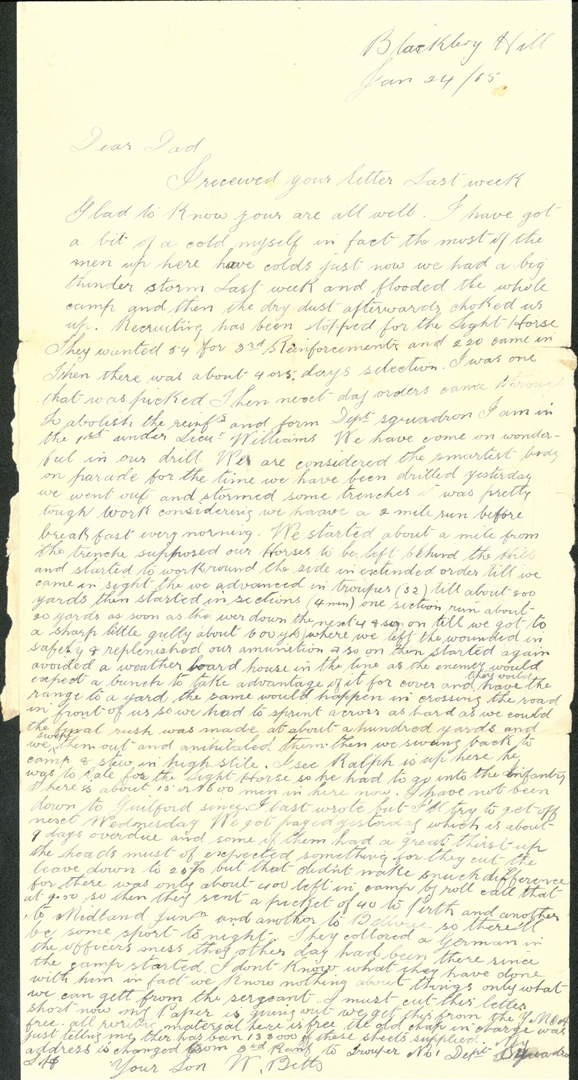 Blackboy Hill
Jan 24/15
Dear Dad
I received your letter Last week
Glad to know yours are all well. I have got
a bit of a cold myself in fact the most of the
men up here have colds just now we had a big
thunder storm Last week and flooded the whole
camp and then the dry dust afterwards choked us
up. Recruiting has been stopped for the Light Horse
They wanted 54 for 3rd Reinforcements and 220 came in
Then there was about 4 days selection. I was one
that was picked Then next day orders came through
to abolish the reinfts and form Dept squadron I am in
the 1st under Lieut Williams We have come on wonder-
ful in our drill We are considered the smartest body
on parade for the time we have been drilled yesterday
we went out and stormed some trenches it was pretty
tough work considering we haave a 2 mile run before
breakfast every morning. We started about a mile from
the trenche supposed our Horses to be left behind the Hill
and started to work round the side in extended order till we
came in sight the we advanced in troupes (32) till about 800
yards then started in sections (4 men) one section run about
20 yards as soon as the wer down the next 4 & so on till we got to
a sharp little gully about 600 yds where we left the wounded in
safety & replenished our amunition & so on then started again
avoided a weather board house in the line as the enemy would
expect a bunch to take advantage of it for cover and they would have the
range to a yard the same would happen in crossing the road
in front of us so we had to sprint across as hard as we could
the final rush was made at about a hundred yards and
we swept them out and anihilated them then we swung back to
camp & stew in high stile. I see Ralph is up here he
was to late for the Light Horse so he had to go into the Infantry
There is about 15 or 1600 men in here now. I have not been
down to Guilford since I last wrote but I'll try to get off
next Wednesday We got payed yesterday which is about
9 days overdue and some of them had a great thirst up
the heads must of expected something for they cut the
leave down to 20% but that didnt make much difference
for there was only about 400 left in camp by roll call that
at 9.30 so then they sent a picket of 40 to Perth and another
to Midland Junc and another to Bellvue so there'll
be some sport to night. They collored a German in
the officers mess the other day had been there since
the camp started. I dont know what they have done
with him in fact we know nothing about things only what
we can gett from the sergeant. I must cut this letter
short now my Paper is giving out we get this from the Y.M.C.A
free. all writing material here is free the old chap in charge was
just telling me ther has ben 13000 of these sheets supplied. My
address is changed from 3rd Reinf to Trooper No 1 Dept Squadron
L H
Your Son W. Betts